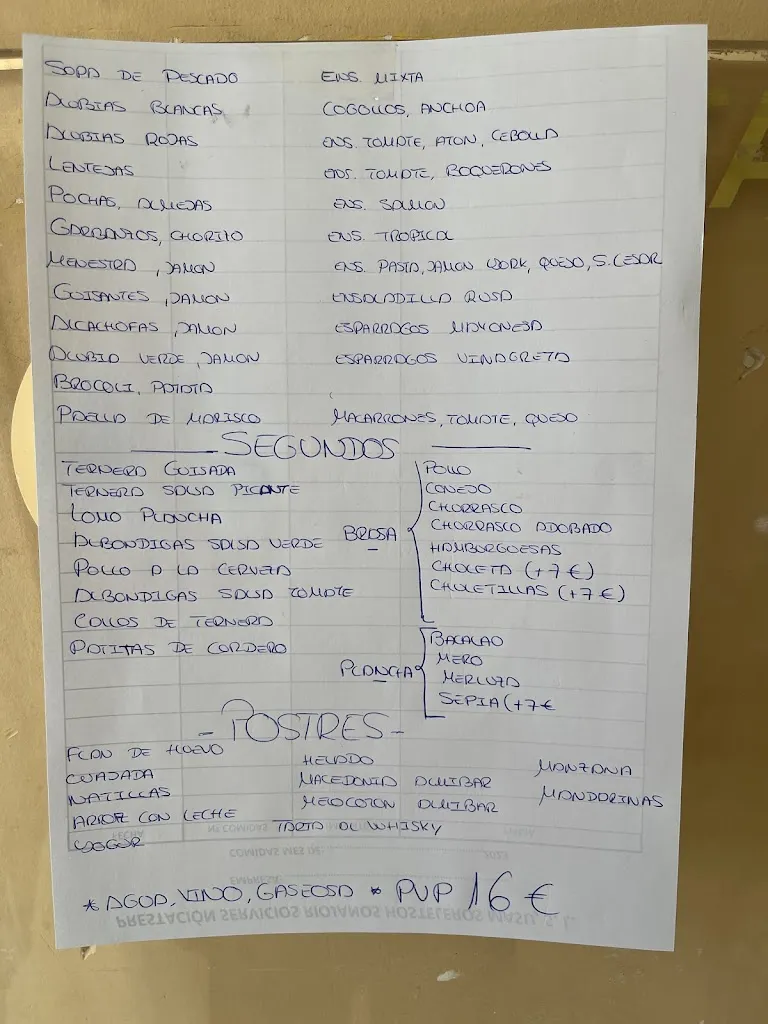 SOPA DE PESCADO
ALUBIAS BLANCAS
ALUBIAS ROJAS
LENTEJAS
POCHAS, ALMEJAS
GARBANZOS, CHORIZO
MENESTRA, JAMON
GUISANTES, JAMON
ALCACHOFAS, JAMON
ALUBIA VERDE, JAMON
BROCOLI, PATATA
PAELLA DE MARISCO
ENS. MIXTA
COGOLLOS, ANCHOA
ENS. TOMATE, ATON, CEBOLLA
ENS. TOMATE, BOQUERONES
ENS. SALMON
ENS. TROPICAL
ENS. PASTA, JAMON YORK, QUESO, S. CESAR
ENSALADILLA RUSA
ESPARRAGOS MAYONESA
ESPARRAGOS VINAGRETA
MACARRONES, TOMATE, QUESO
SEGUNDOS
TERNERA GUISADA
TERNERA SALSA PICANTE
LOMO PLANCHA
ALBONDIGAS SALSA VERDE
POLLO A LA CERVEZA
ALBONDIGAS SALSA TOMATE
CALLOS DE TERNERA
PATITAS DE CORDERO
BRASA
POLLO
CONEJO
CHURRASCO
CHURRASCO ADOBADO
HAMBURGUESAS
CHULETA (+7 €)
CHULETILLAS (+7 €)
PLANCHA
BACALAO
MERO
MERLUZA
SEPIA (+7 €
- POSTRES -
FLAN DE HUEVO
CUAJADA
NATILLAS
ARROZ CON LECHE
YOGUR
HELADO
MACEDONIA ALMIBAR
MELOCOTON ALMIBAR
TARTA AL WHISKY
MANZANA
MANDARINAS
FECHA
Nº COMIDAS
COMIDAS MES DE:
EMPRESA:
* AGUA, VINO, GASEOSA * PVP 16 €
PRESTACIÓN SERVICIOS RIOJANOS HOSTELEROS MASU, S. L.